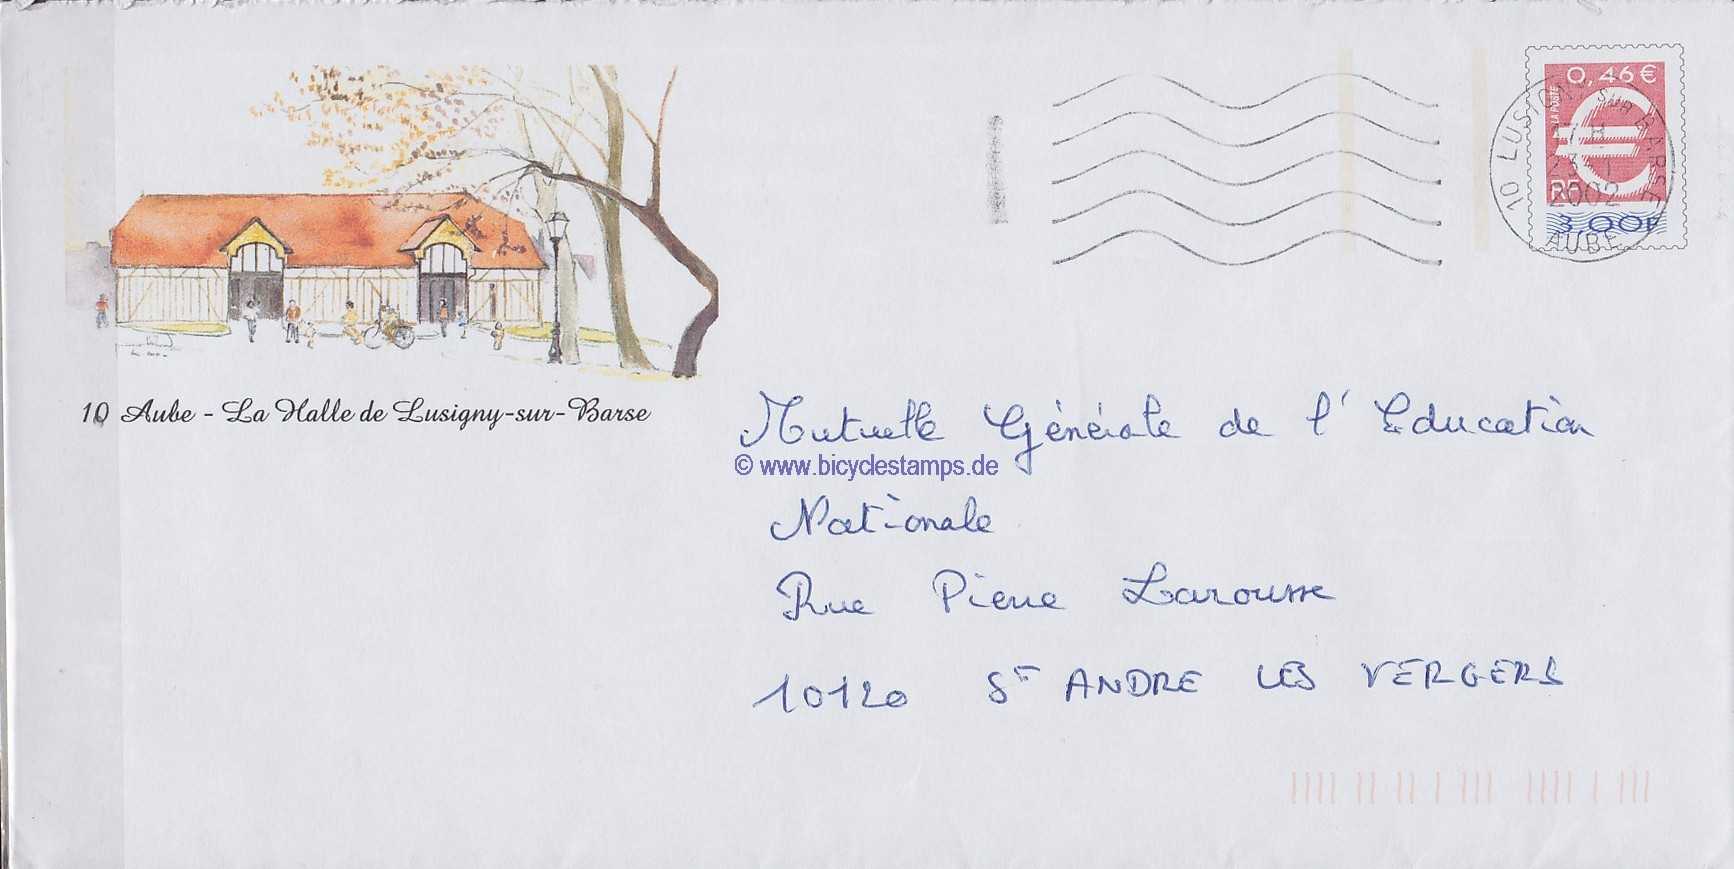 0,46€
LA POSTE
RF
3,00F
10 LUSIGNY SUR BARSE
7H
2002
AUBE
10 Aube - La Halle de Lusigny-sur-Barse
Mutuelle Générale de l'Education
© www.bicyclestamps.de
Nationale
Rue Pierre Larousse
10120 St ANDRE LES VERGERS